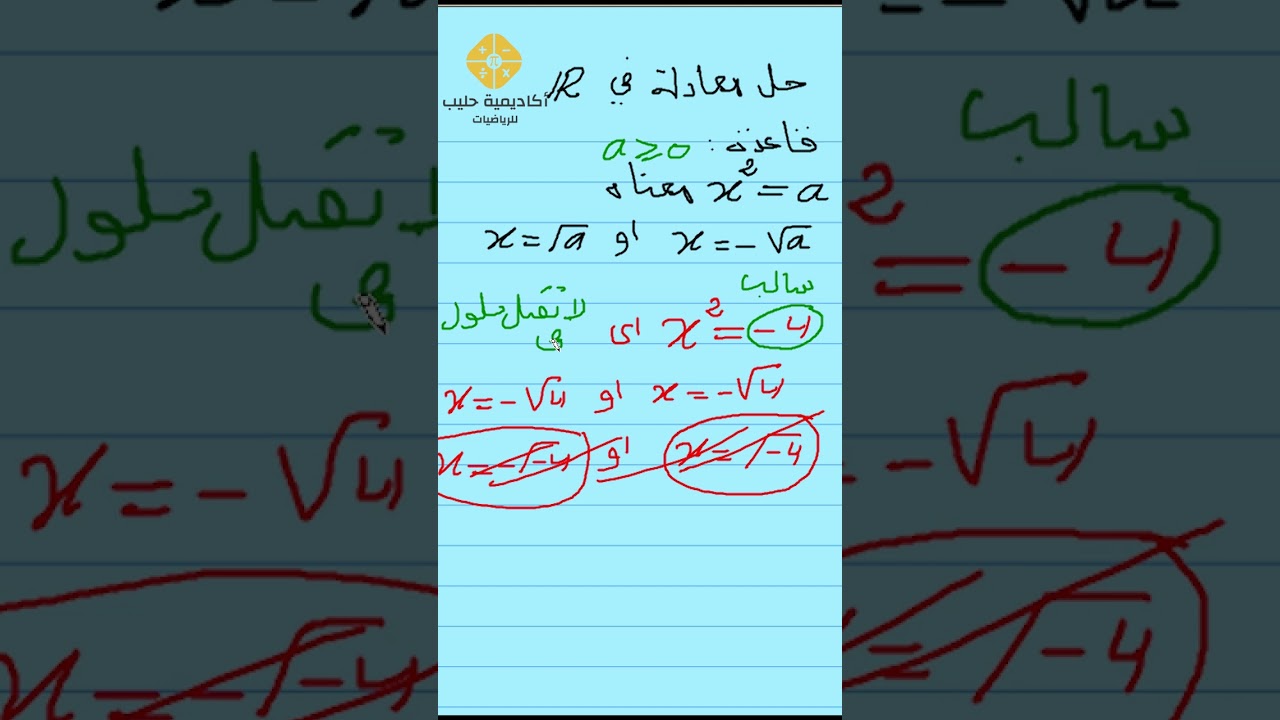 أكاديمية حليب
للرياضيات
حل معادلة في IR
قاعدة: a ≥ 0
x² = a معناه
x = √a أو x = -√a
سالب
x² = -4 أي لا تقبل حلول
في
x = -√4 أو x = -√4
x = -√-4 أو x = √-4